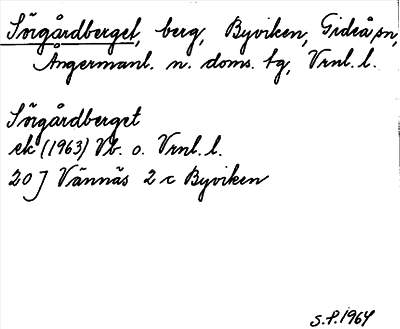 Sörgårdberget, berg, Byviken, Gideå sn,
Ångermanl. n. doms. tg, Vrnl. l.
Sörgårdberget
ek (1963) Vb. o. Vrnl. l.
20 J Vännäs 2 c Byviken
S.P. 1964